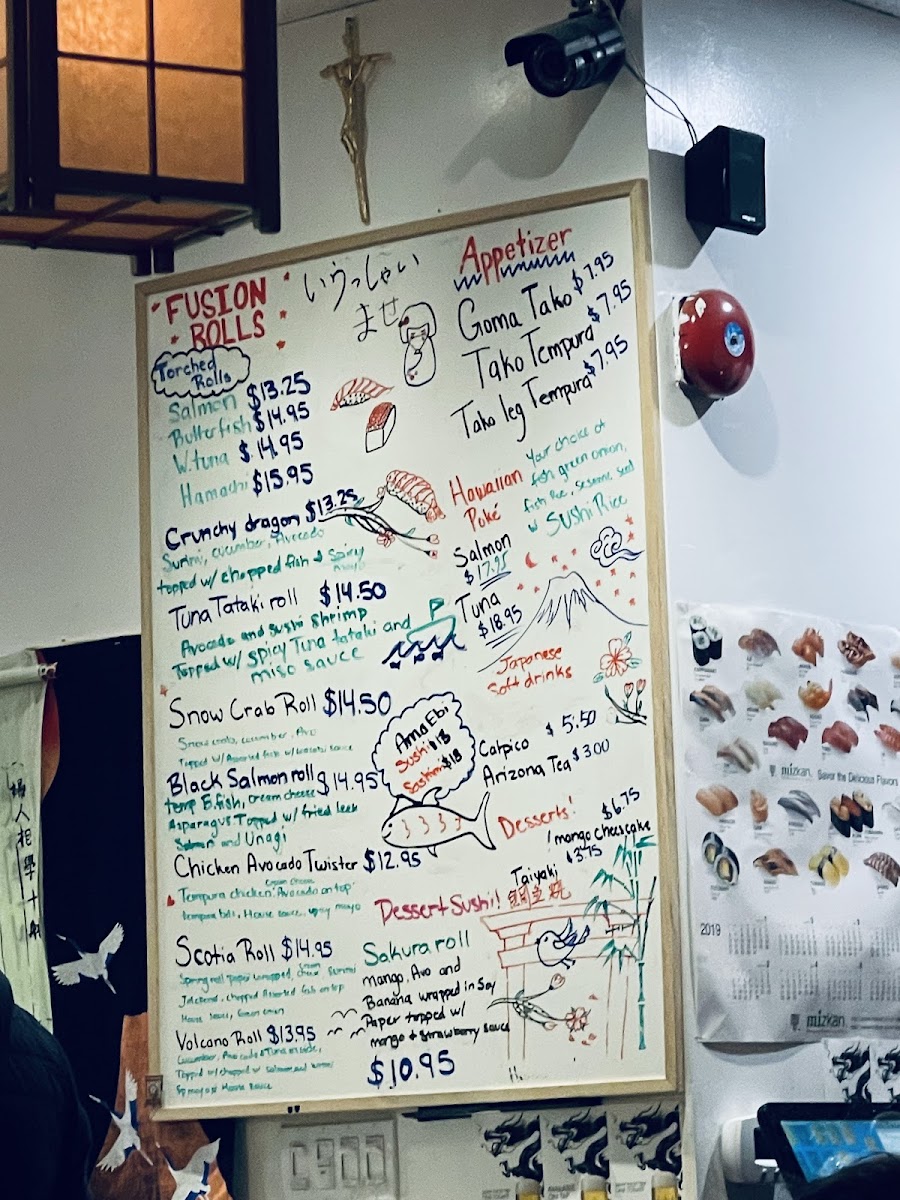 FUSION
ROLLS
Torched
Rolls
Salmon $13.25
Butterfish $14.95
W.tuna $14.95
Hamachi $15.95
Crunchy dragon $13.25
Surimi, cucumber, Avocado
topped w/ chopped fish & Spicy
mayo
Tuna Tataki roll $14.50
Avocado and sushi shrimp
Topped w/ spicy Tuna tataki and
miso sauce
Snow Crab Roll $14.50
Snow crab, cucumber, Avo
Topped w/ Assorted fish w/ wasabi sauce
Black Salmon roll $14.95
temp B.fish, cream cheese
Asparagus Topped w/ fried leek
Salmon and Unagi
Chicken Avocado Twister $12.95
cream cheese
Tempura chicken, Avocado on top
tempura bits, House sauce, spicy mayo
Scotia Roll $14.95
Spring roll paper wrapped, cream cheese Surimi
Jalapeno, chopped Assorted fish on top
House sauce, Green onion
Volcano Roll $13.95
Cucumber, Avocado & Tuna inside,
Topped w/ chopped w/ Salmon and
Sp mayo & House sauce
いらっしゃい
ませ
Appetizer
Goma Tako $7.95
Tako Tempura $7.95
Tako leg Tempura $7.95
Hawaiian
Poké
Your choice of
fish green onion,
fish Roe, Sesame seed
w/ Sushi Rice
Salmon
$17.95
Tuna
$18.95
Japanese
Soft drinks
Calpico $5.50
Arizona Tea $3.00
Ama Ebi
Sushi $13
Sashimi $18
Desserts!
$6.75
mango cheesecake
$3.75
Taiyaki
Dessert Sushi!
Sakura roll
mango, Avo and
Banana wrapped in Soy
Paper topped w/
mango & strawberry sauce
$10.95
mizkan. Savor the Delicious Flavors
2019
mizkan